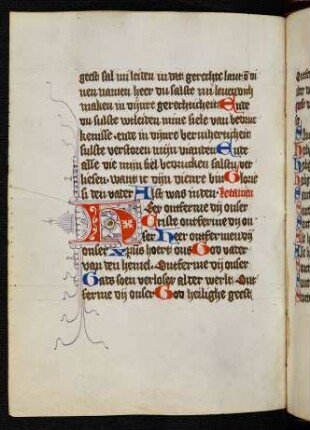 geest sal mi leiden in dat gerechte lant om di
nen namen heer du salste mi levendich
maken in dijnre gerechticheit Ende
du sulste wtleiden mine siele van bedruc
kenisse ende in dijnre bermherticheit
sulste verstoren mijn vianden Ende
alle die mijn siel bedrucken salstu ver
liesen want ic dijn dienre bin Glorie
si den vader Als was inden letanien
Heer ontferme dij on
Criste ontferme dij on
ser Heer ontferme dij
onser Xpus hoert ons God vader
van den hemel Ontferme dij onser
Gods soen verloser alder werlt Ont
ferme dij onser God heilighe geest